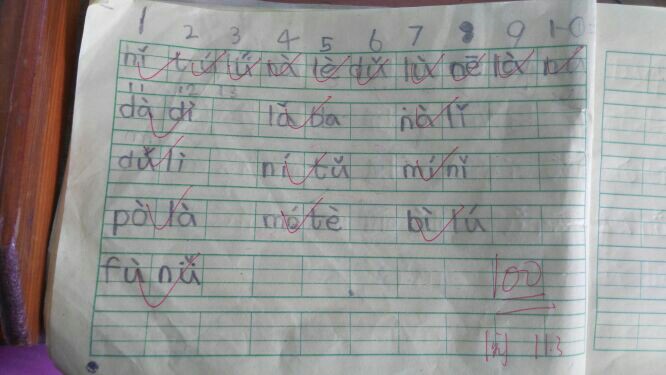 1 2 3 4 5 6 7 8 9 10
nǐ tú nà lè dǔ lù nē là
11 12 13
dà dì lǎ ba nà lǐ
dú lì ní tǔ mí nǐ
pò là mó tè bì lú
fù nǚ
100
11.3